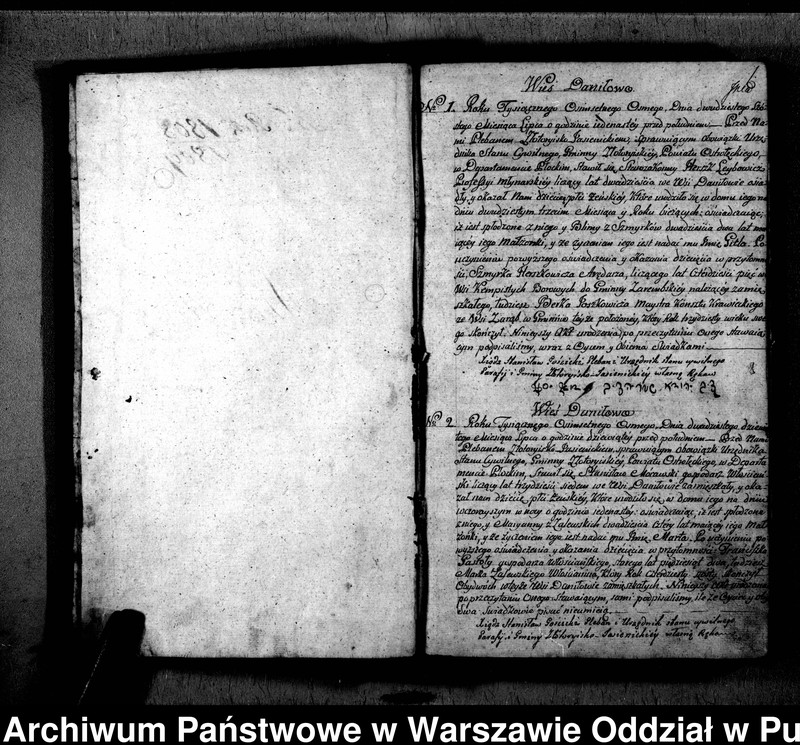 Wieś Daniłowo
No 1. Roku Tysiącznego Osimsetnego Osmego, Dnia dwudziestego
Miesiąca Lipca o godzinie iedenastéy przed południem. — Przed Na-
mi Plebanem Złotoryisko Jasienickiem, sprawuiącym obowiązki Urzę-
dnika Stanu Cywilnego, Gminny Złotoryiskiéy, Powiatu Ostrołęckiego,
w Departamencie Płockim, stawił się Starozakonny Herszk Leybowicz
Professyi Młynarskiéy liczący lat dwadzieścia we Wsi Daniłowie osia-
dły y okazał Nam dziecię płci Żeńskiéy, Które urodziło się w domu iego na
dniu dwudziestym trzecim Miesiąca y Roku bieżących; oświadczaiąc,
iż iest spłodzone z niego y z Szmyrków dwadzieścia dwa lat ma-
iącéy iego Małżonki, y że życzeniem iego iest nadać mu Imie Gitla. Po
uczynieniu powyższego oświadczenia y okazania dziecięcia w przytomno-
ści, Szmyrka Herszkowicza Arędarza, liczącego lat czterdzieści pięć we
Wsi Kempistych Borowych do Gminny Zarembskiéy należącéy zamie-
szkałego, tudzież Joszkowicza Maystra Konsztu Krawieckiego
ze Wsi Zaręb w Gminnie téyże położonéy, Który Rok trzydziesty wieku swe-
go skończył. Ninieyszy Akt urodzenia po przeczytaniu Onego stawaią-
cym podpisaliśmy, wraz z Oycem y Obiema Świadkami. —
Xiądz Stanisław Gościcki Pleban i Urzędnik stanu cywilnego
Parafij i Gminy Złotoryisko-Jasienickiéy własną Ręką
Wieś Daniłowo
No 2. Roku Tysiącznego Osimsetnego Osmego, Dnia dwudziestego dziewią-
tego Miesiąca Lipca o godzinie dziewiątéy przed południem. — Przed Nami
Plebanem Złotoryisko Jasienickiem, sprawuiącym obowiązki Urzędnika
Stanu Cywilnego, Gminny Złotoryiskiéy, Powiatu Ostrołęckiego, w Departa-
mencie Płockim, stawił się Stanisław Morawski gospodarz Włościań-
ski liczący lat trzydzieści siedem we Wsi Daniłowie zamieszkały, y oka-
zał nam dziecię płci Żeńskiéy, Które urodziło się w domu iego na dniu
wczorayszym w nocy o godzinie iedenastéy: oświadczaiąc, iż iest spłodzone
z niego, y Maryanny z Zalewskich dwadzieścia cztéry lat maiącéy iego Mał-
żonki, y że życzeniem iego iest nadać mu Imie Marta. Po uczynieniu po-
wyższego oświadczenia y okazania dziecięcia w przytomności Franciszka
gospodarza Włościańskiego, maiącego lat piędziesiąt dwa, tudzież
Marka Zalewskiego Włościanina, Który Rok czterdziesty skończył,
Obydwóch w teyże Wsi Daniłowie zamieszkałych. Ninieyszy Akt urodzenia
po przeczytaniu Onego Stawaiącym, sami podpisaliśmy, ile że Oyciec y oby-
dwa świadkowie pisać nieumieią. —
Xiądz Stanisław Gościcki Pleban i Urzędnik stanu cywilnego
Parafij i Gminy Złotoryisko-Jasienickiéy własną Ręką
Archiwum Państwowe w Warszawie Oddział w Pu